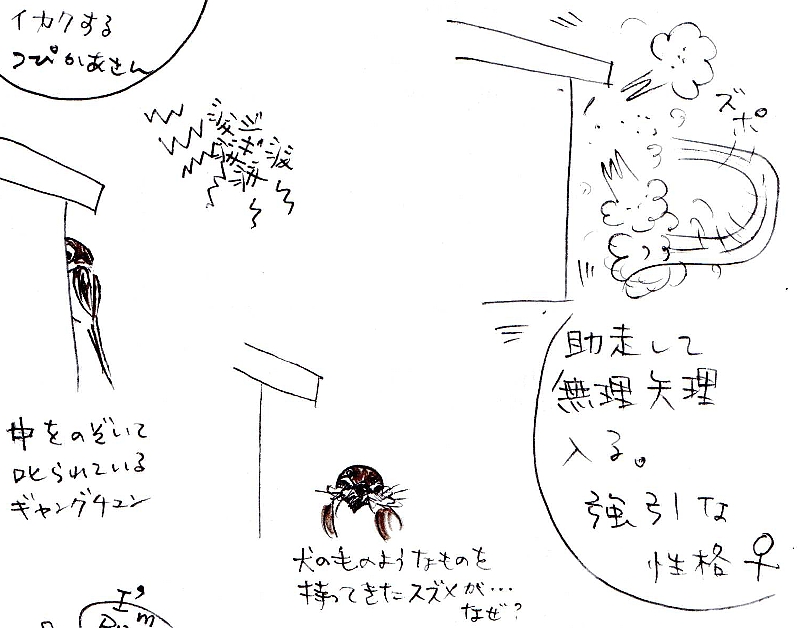 イカクする
つぴかあさん
ズポ
中をのぞいて
叱られている
ギャングチュン
犬の毛のようなものを
持ってきたスズメが…
なぜ?
助走して
無理矢理
入る。
強引な
性格♀
I'm